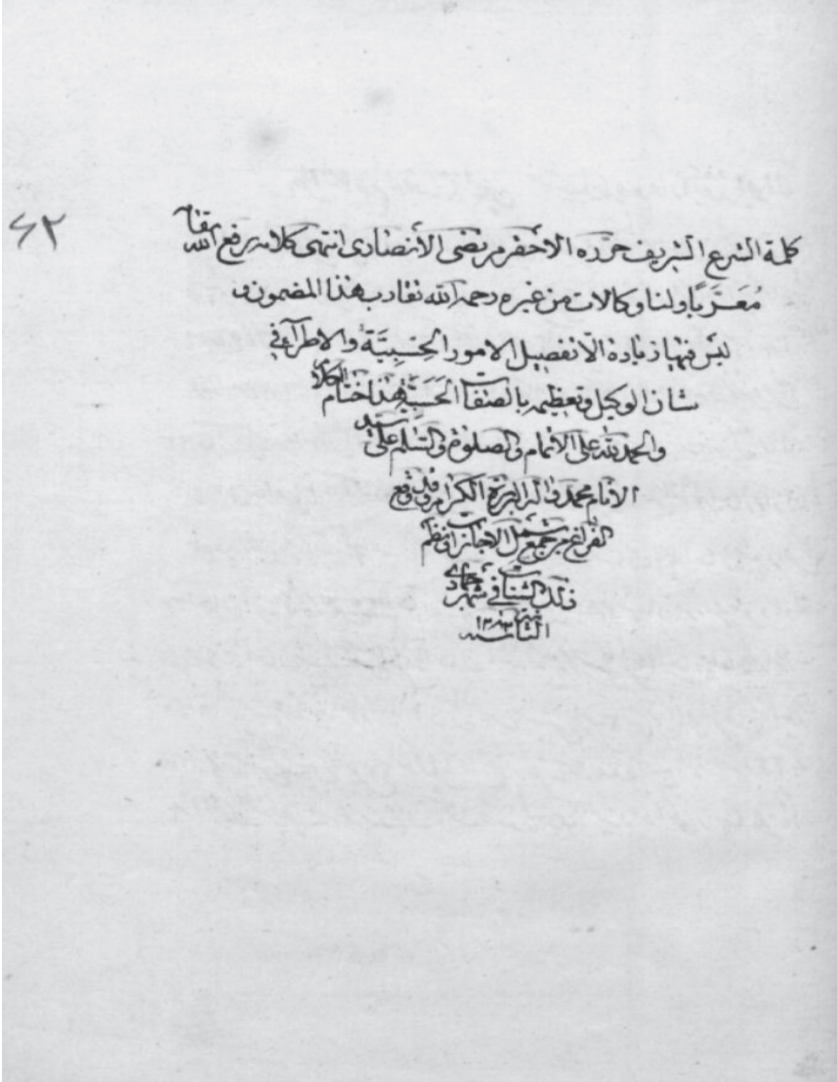 ٦٢
كلمة الشرع الشريف حرره الاحقر مرتضى الأنصارى انتهى كلامه رفع الله مقامه
مُعَرَّبًا ولنا وكالات من غيره رحمه الله تقارب هذا المضمون و
ليس فيها زيادة الّا تفصيل الامور الحِسبِيَّة والاطرآء فى
شان الوكيل وتعظيمه بالصفات الحَسَنة هذا ختام الكلام
والحمد لله على الاتمام والصلوة والسّلم على سيد
الانام محمد واله البررة الكرام وقد وقع
الفراغ من جمع الاجازات ونظم
ذلك الشتات فى شهر جمادى
الثانيه سنة